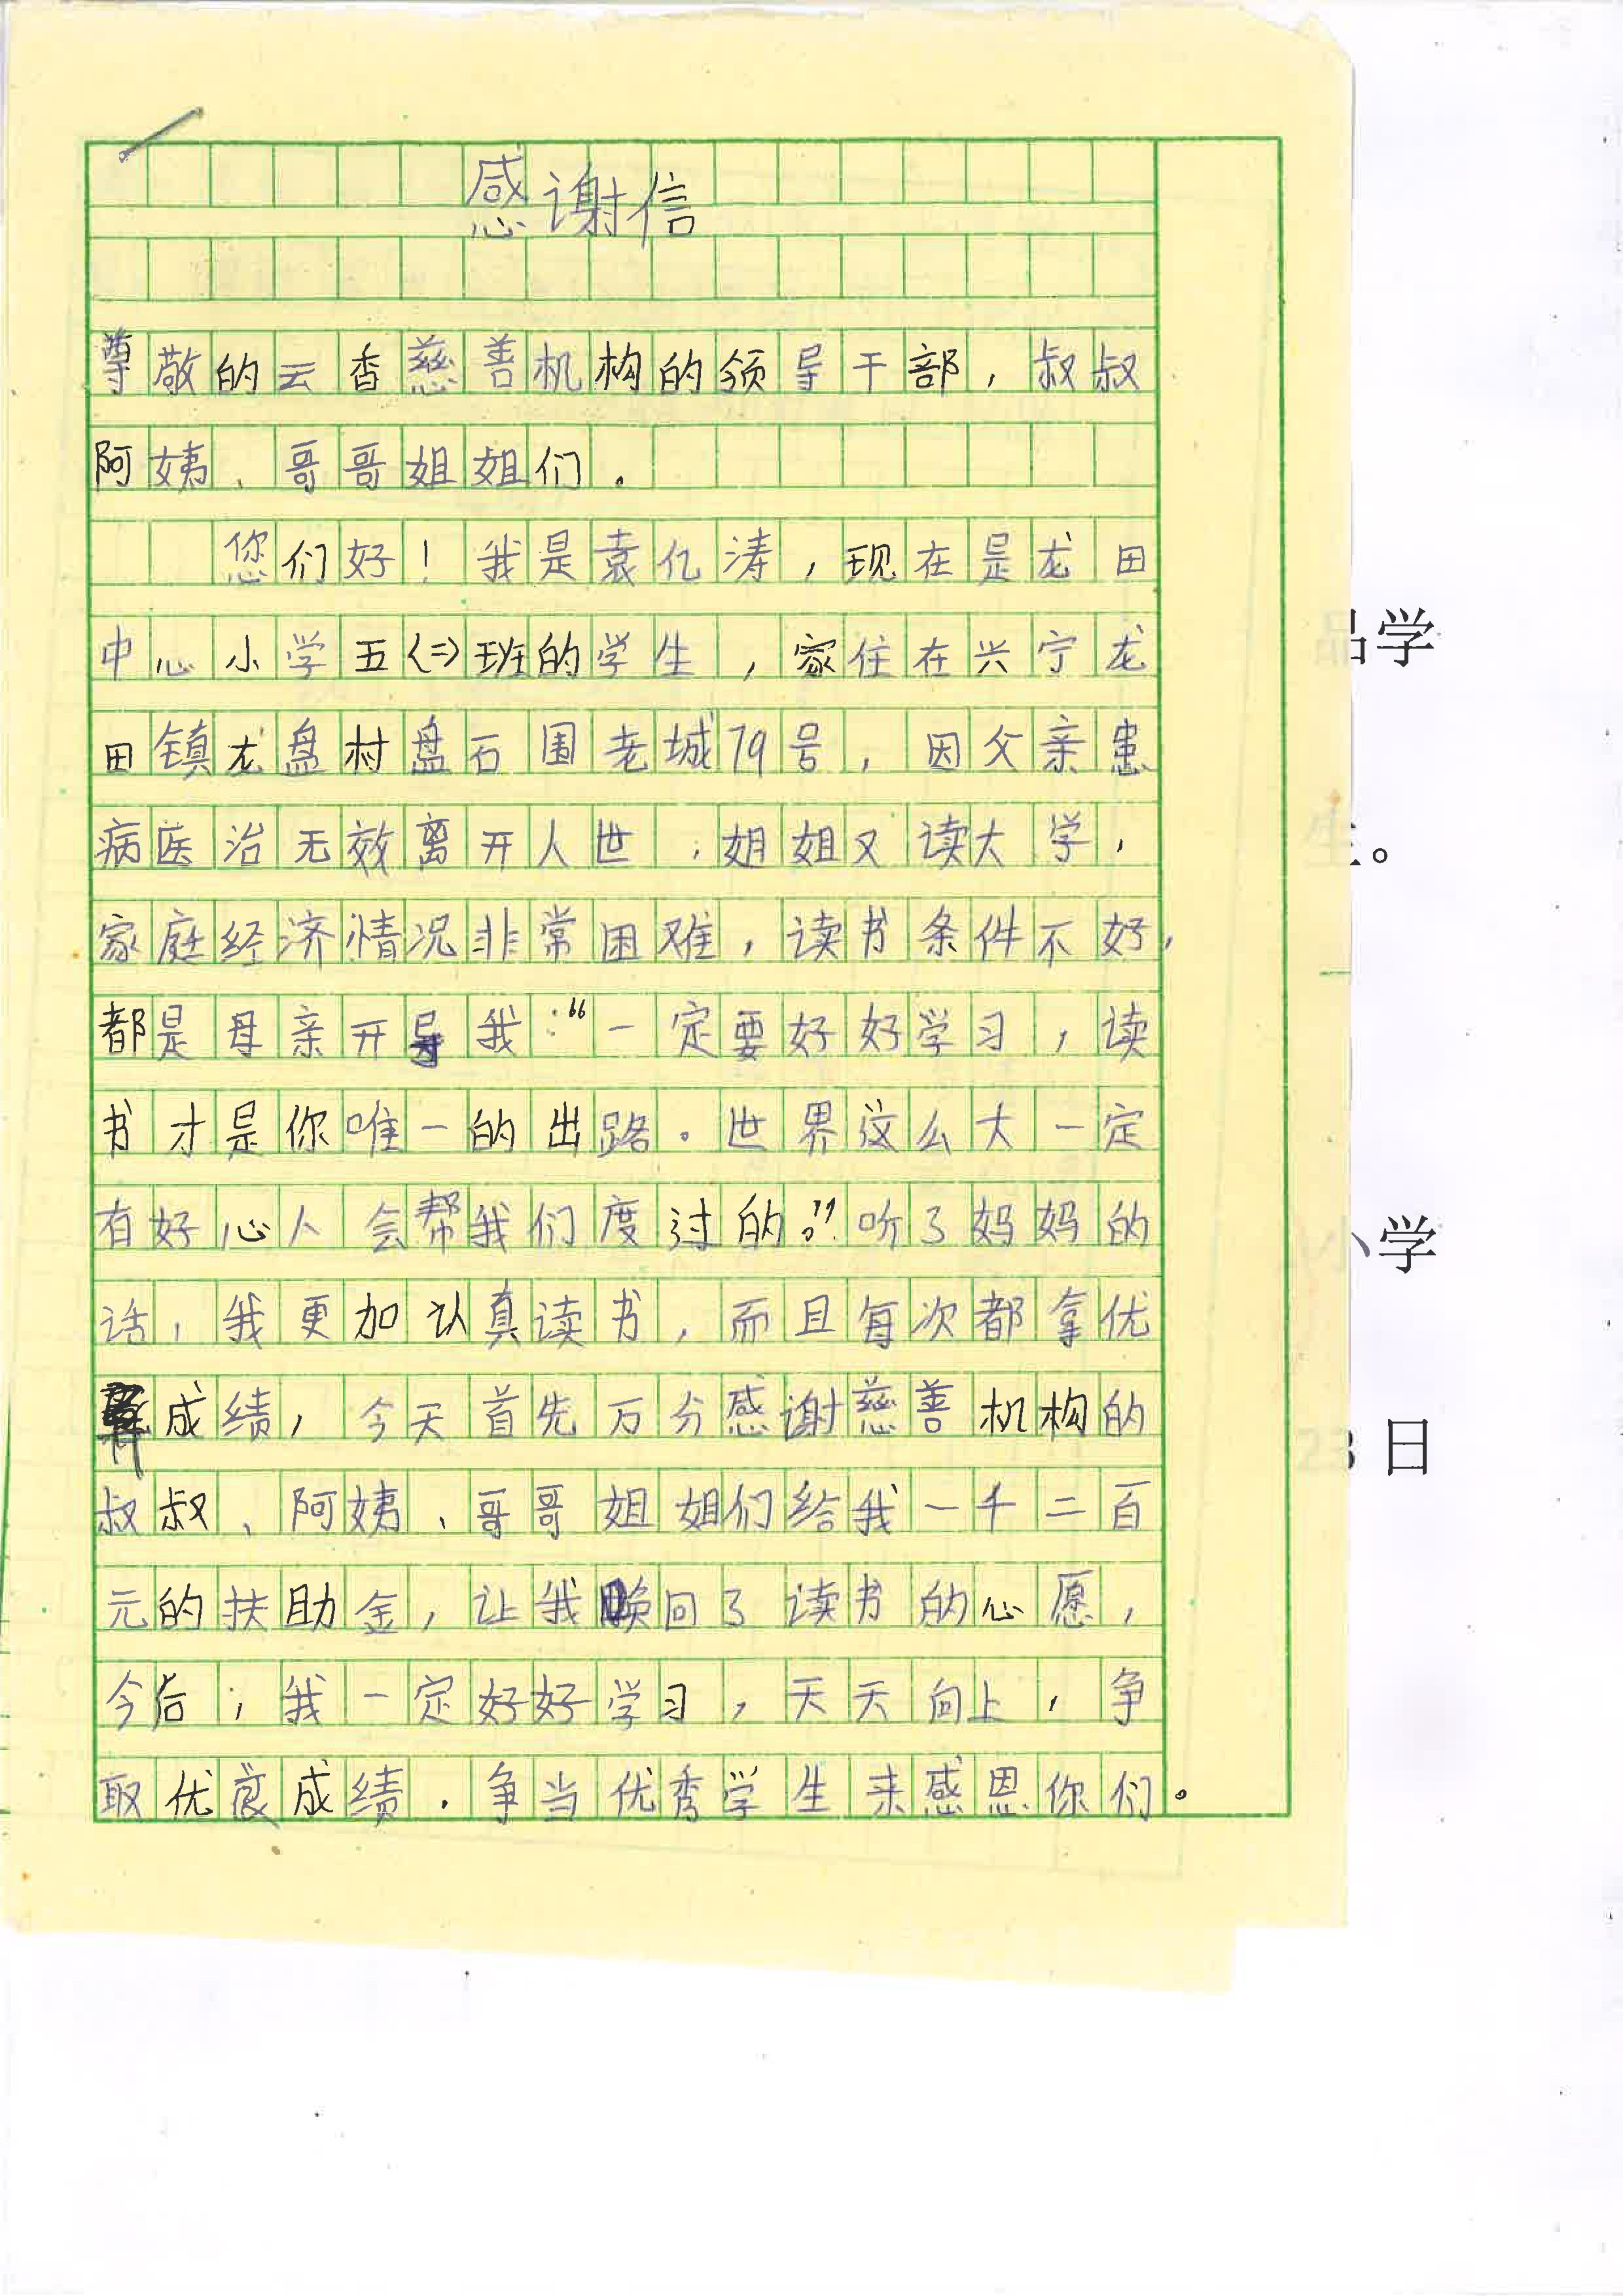 感谢信
尊敬的云香慈善机构的领导干部，叔叔
阿姨、哥哥姐姐们.
您们好！我是袁亿涛，现在是龙田
中心小学五(二)班的学生，家住在兴宁龙
田镇龙盘村盘石围老城79号，因父亲患
病医治无效离开人世，姐姐又读大学，
家庭经济情况非常困难，读书条件不好，
都是母亲开导我：“一定要好好学习，读
书才是你唯一的出路.世界这么大一定
有好心人会帮我们度过的。”听了妈妈的
话，我更加认真读书，而且每次都拿优
成绩，今天首先万分感谢慈善机构的
叔叔、阿姨、哥哥姐姐们给我一千二百
元的扶助金，让我唤回了读书的心愿，
今后，我一定好好学习，天天向上，争
取优良成绩.争当优秀学生来感恩你们。
品学
生。
小学
23日